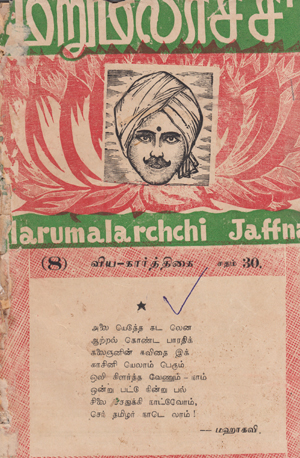 மறுமலர்ச்சி
Marumalarchchi Jaffna
(8) விய-கார்த்திகை சதம் 30.
அலை யெடுத்த கட லென
ஆற்றல் கொண்ட பாரதிக்
கலைஞனின் கவிதை இக்
காசினி யெலாம் பெரும்
ஒலி கிளர்த்த வேணும் - யாம்
ஒன்று பட்டே நின்று பல்
சிலை சமைக்கி நாட்டுவோம்,
செந் தமிழர் நாடெ லாம்!
— மஹாகவி.